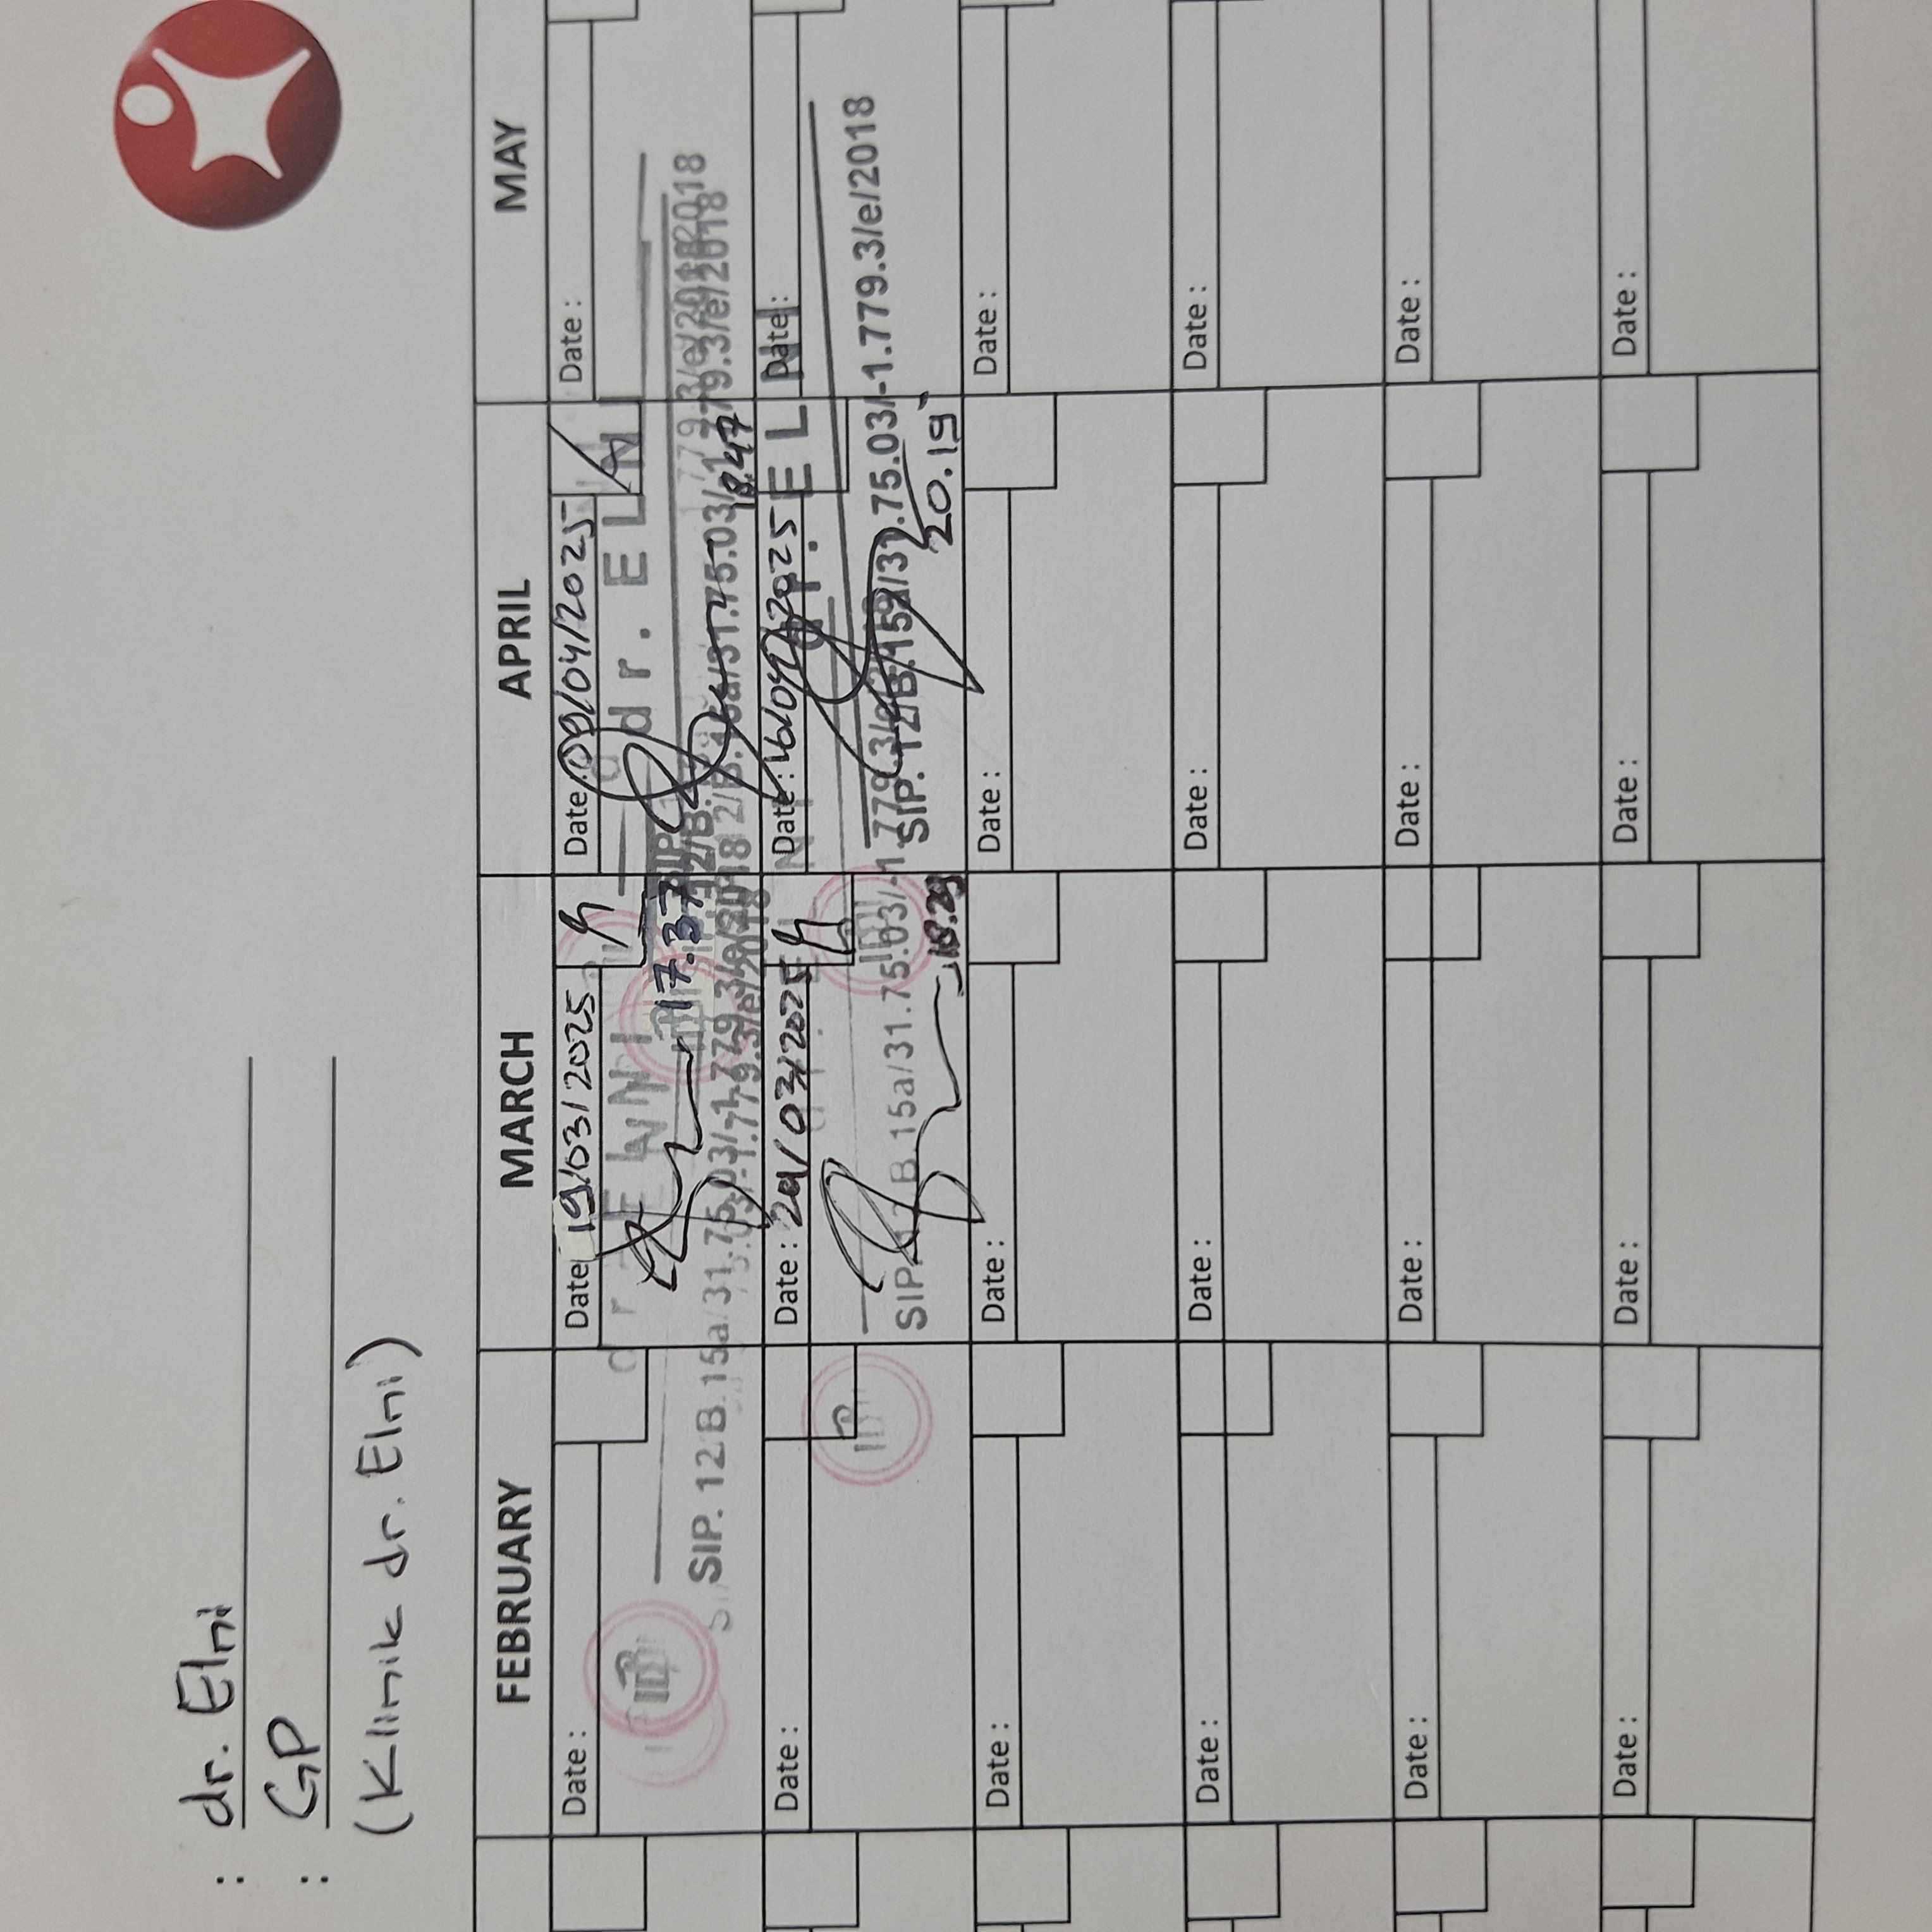 : dr. Elni
: GP
(Klinik dr. Elni)
FEBRUARY MARCH APRIL MAY
Date : Date 19/03/2025 Date : 09/04/2025 Date :
dr. ELN
17.37 18.47
SIP. 12 B. 15a/31.75.03/-1.779.3/e/2018
Date : Date : 24/03/2025 Date : 16/04/2025 Date :
SIP. B. 15a/31.75.03/-1.779.3/e/2018
18.29 20.19
Date : Date : Date : Date :
Date : Date : Date : Date :
Date : Date : Date : Date :
Date : Date : Date : Date :